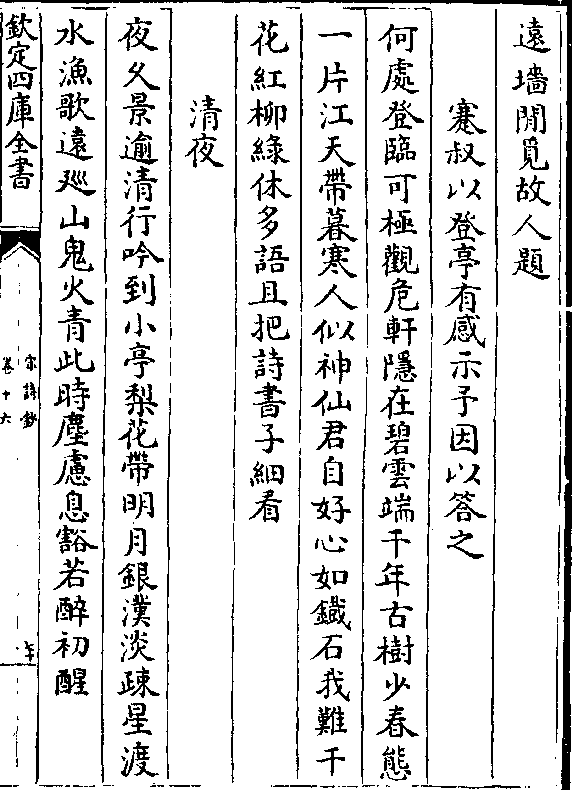 遠墻閒覓故人題
蹇叔以登亭有感示予因以答之
何處登臨可極觀危軒隱在碧雲端千年古樹少春態
一片江天帶暮寒人似神仙君自好心如鐵石我難干
花紅柳綠休多語且把詩書子細看
清夜
夜久景逾清行吟到小亭梨花帶明月銀漢淡疎星渡
水漁歌遠廵山鬼火青此時塵慮息豁若醉初醒
欽定四庫全書
宋詩鈔
卷十六